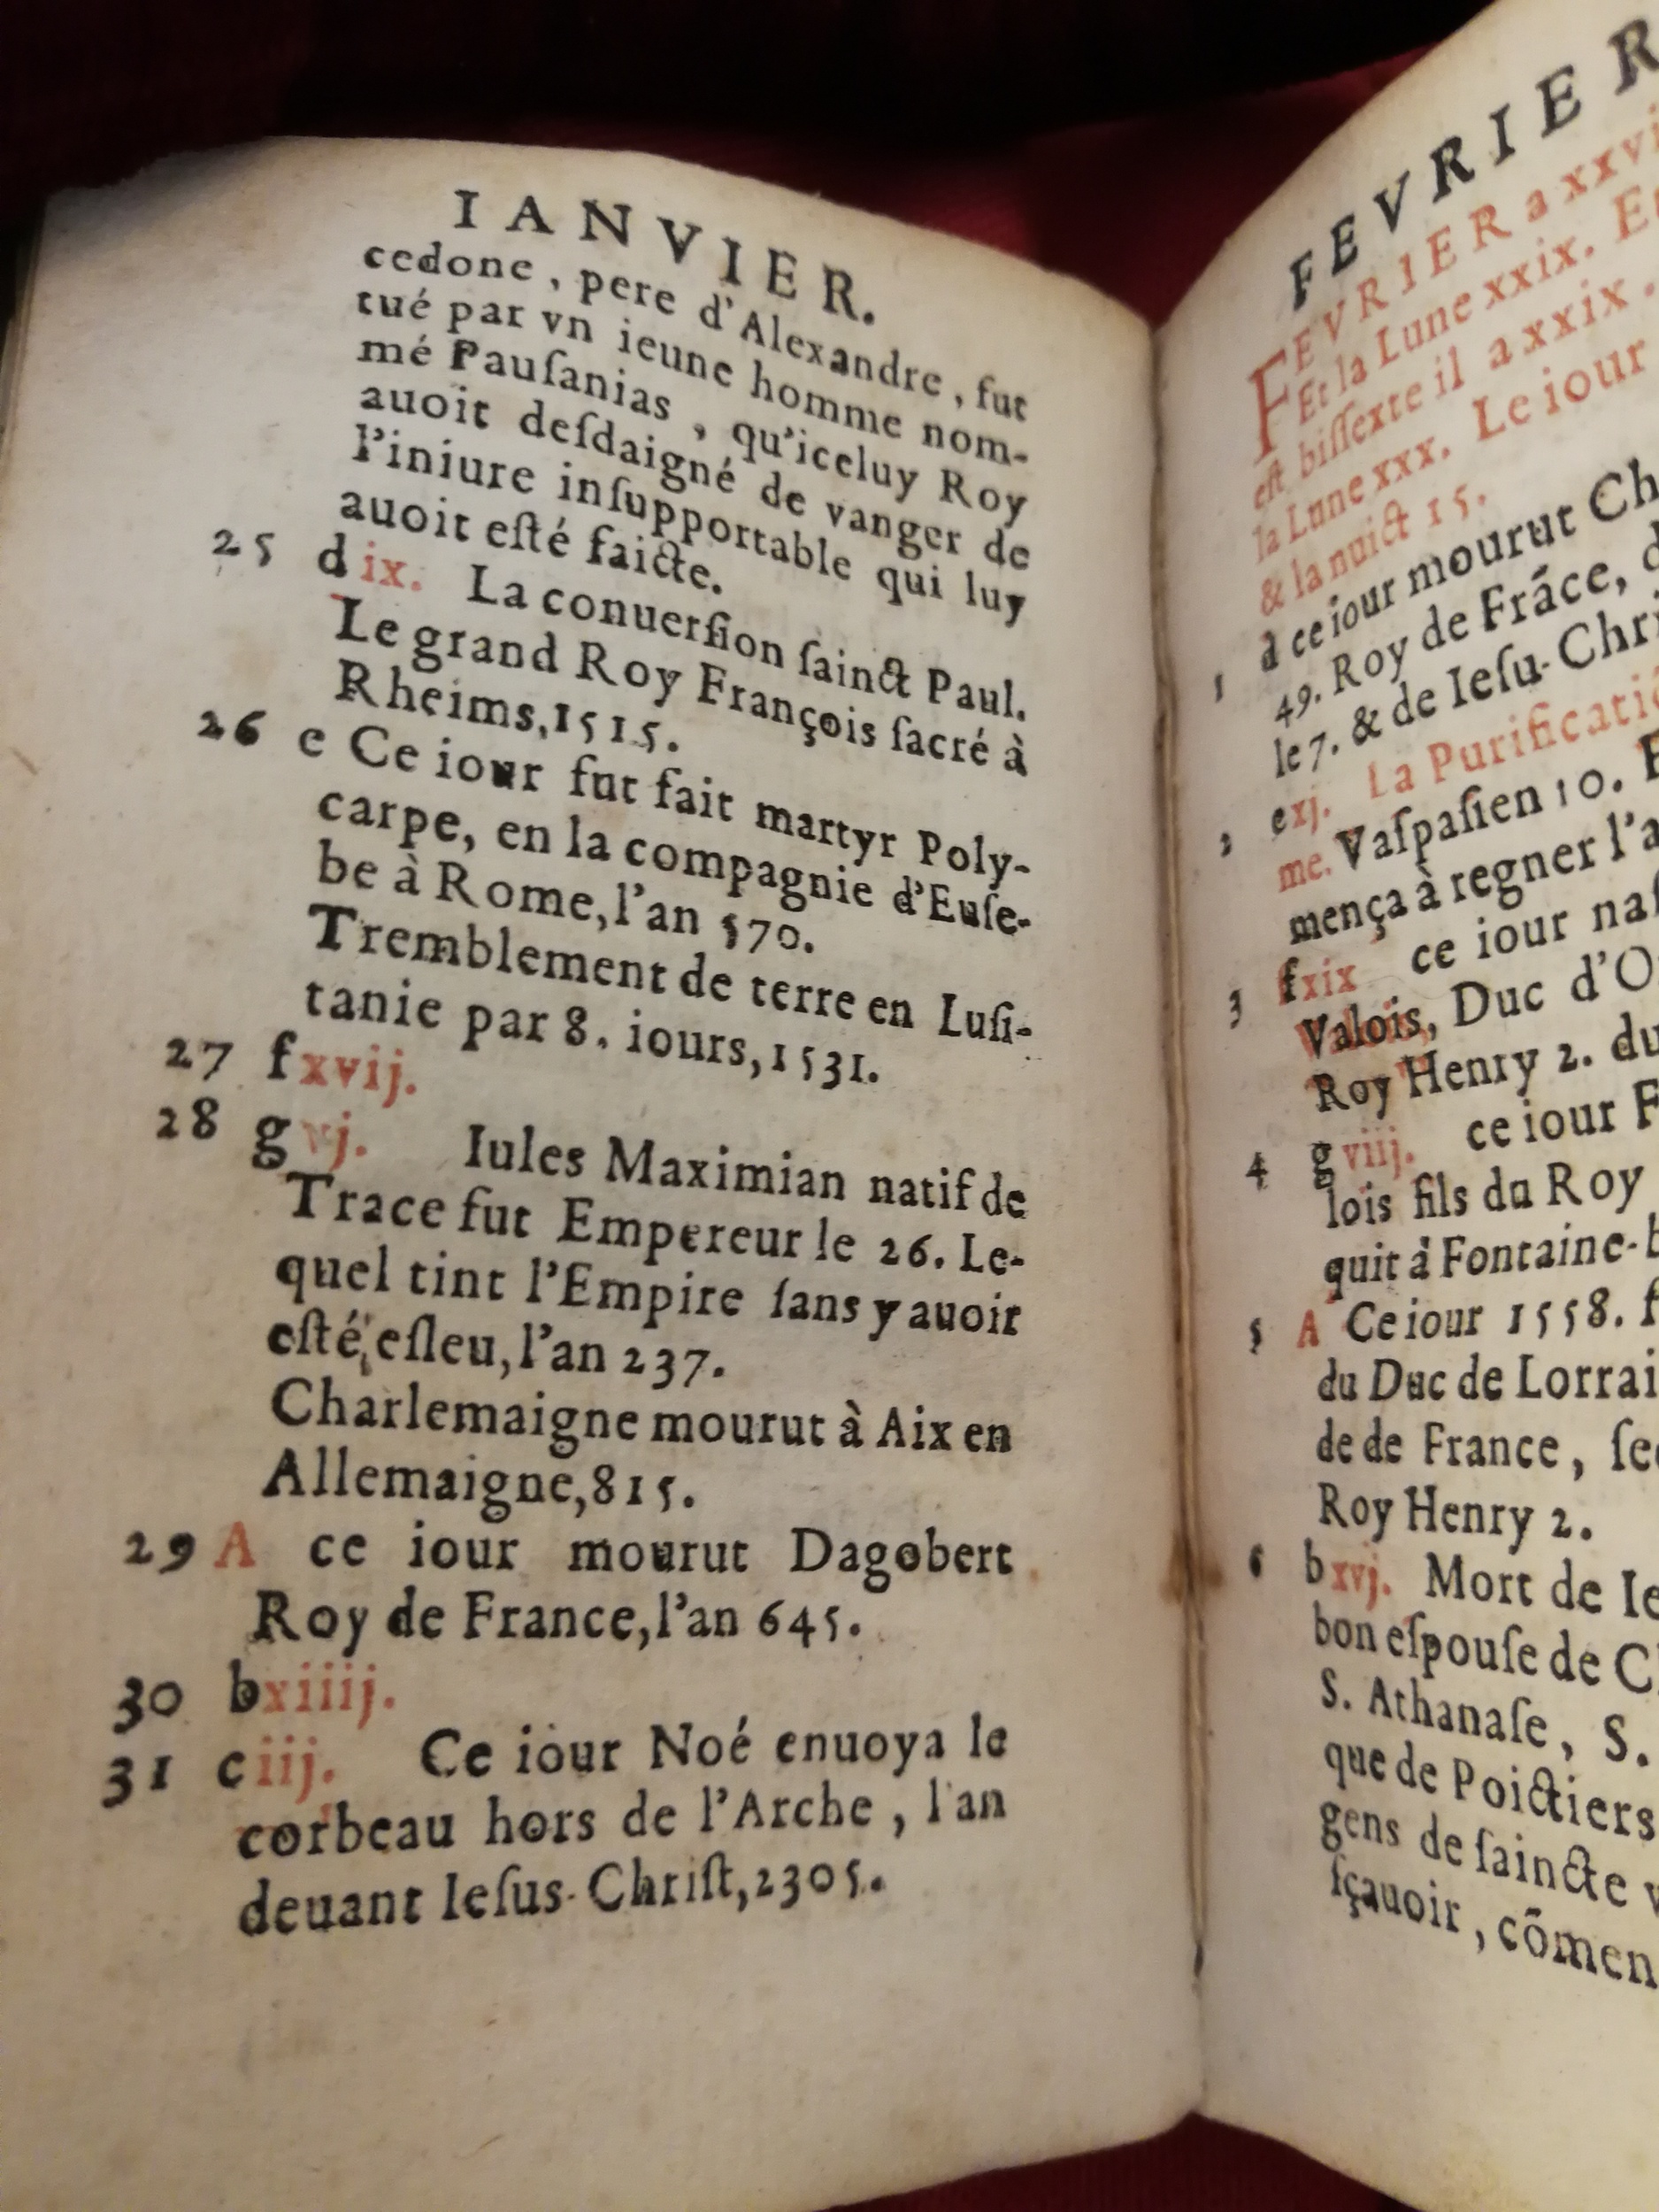 IANVIER.
cedone, pere d'Alexandre, fut
tué par vn ieune homme nom-
mé Pauſanias, qu'iceluy Roy
auoit deſdaigné de vanger de
l'iniure inſupportable qui luy
auoit eſté faicte.
25 d ix. La conuerſion ſainct Paul.
Le grand Roy François ſacré à
Rheims, 1515.
26 e Ce iour fut fait martyr Poly-
carpe, en la compagnie d'Euſe-
be à Rome, l'an 570.
Tremblement de terre en Luſi-
tanie par 8. iours, 1531.
27 f xvij.
28 g vj. Iules Maximian natif de
Trace fut Empereur le 26. Le-
quel tint l'Empire ſans y auoir
eſté eſleu, l'an 237.
Charlemaigne mourut à Aix en
Allemaigne, 815.
29 A ce iour mourut Dagobert
Roy de France, l'an 645.
30 b xiiij.
31 c iij. Ce iour Noé enuoya le
corbeau hors de l'Arche, l'an
deuant Ieſus-Chriſt, 2305.
FEVRIER
FEVRIER a xxvi
Et la Lune xxix. Et
eſt biſſexte il a xxix.
la Lune xxx. Le iour
& la nuict 15.
1 d ce iour mourut Ch
49. Roy de Frãce, d
le 7. & de Ieſu-Chri
2 e xj. La Purificatio
me. Vaſpaſien 10. E
mença à regner l'a
3 f xix ce iour naſ
Valois, Duc d'O
Roy Henry 2. du
4 g viij. ce iour F
lois fils du Roy
quit à Fontaine-b
5 A Ce iour 1558. f
du Duc de Lorrai
de de France, ſec
Roy Henry 2.
6 b xvj. Mort de Ie
bon eſpouſe de C
S. Athanaſe, S.
que de Poictiers
gens de ſaincte v
ſçauoir, cõmen